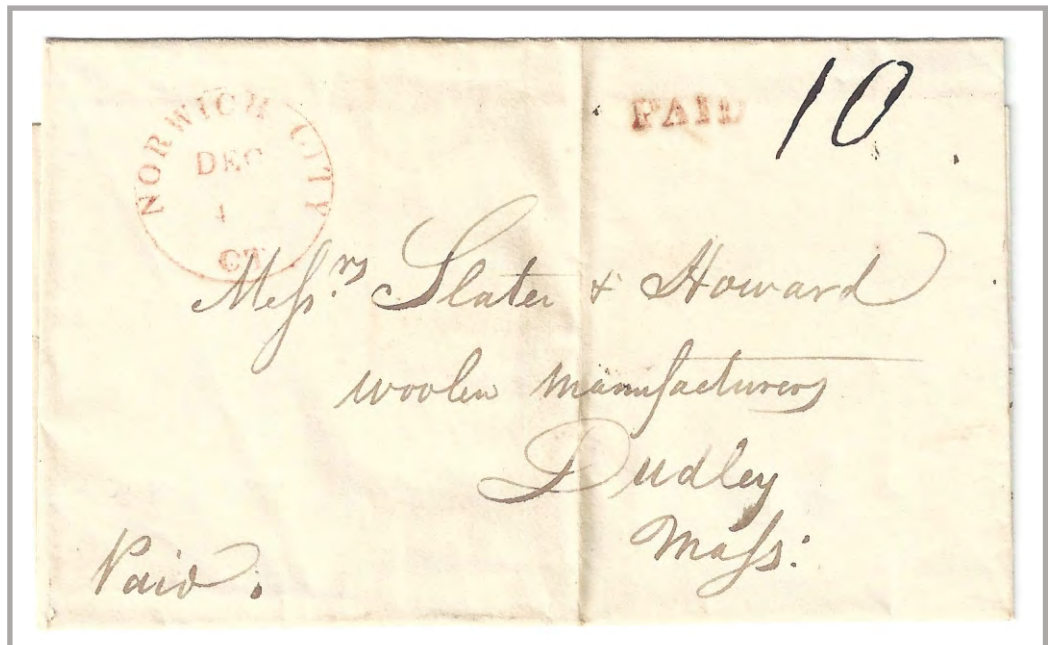 NORWICH CITY
DEC
4
CT
PAID 10
Mess.rs Slater & Howard
woolen manufacturers
Dudley
Mass:
Paid.